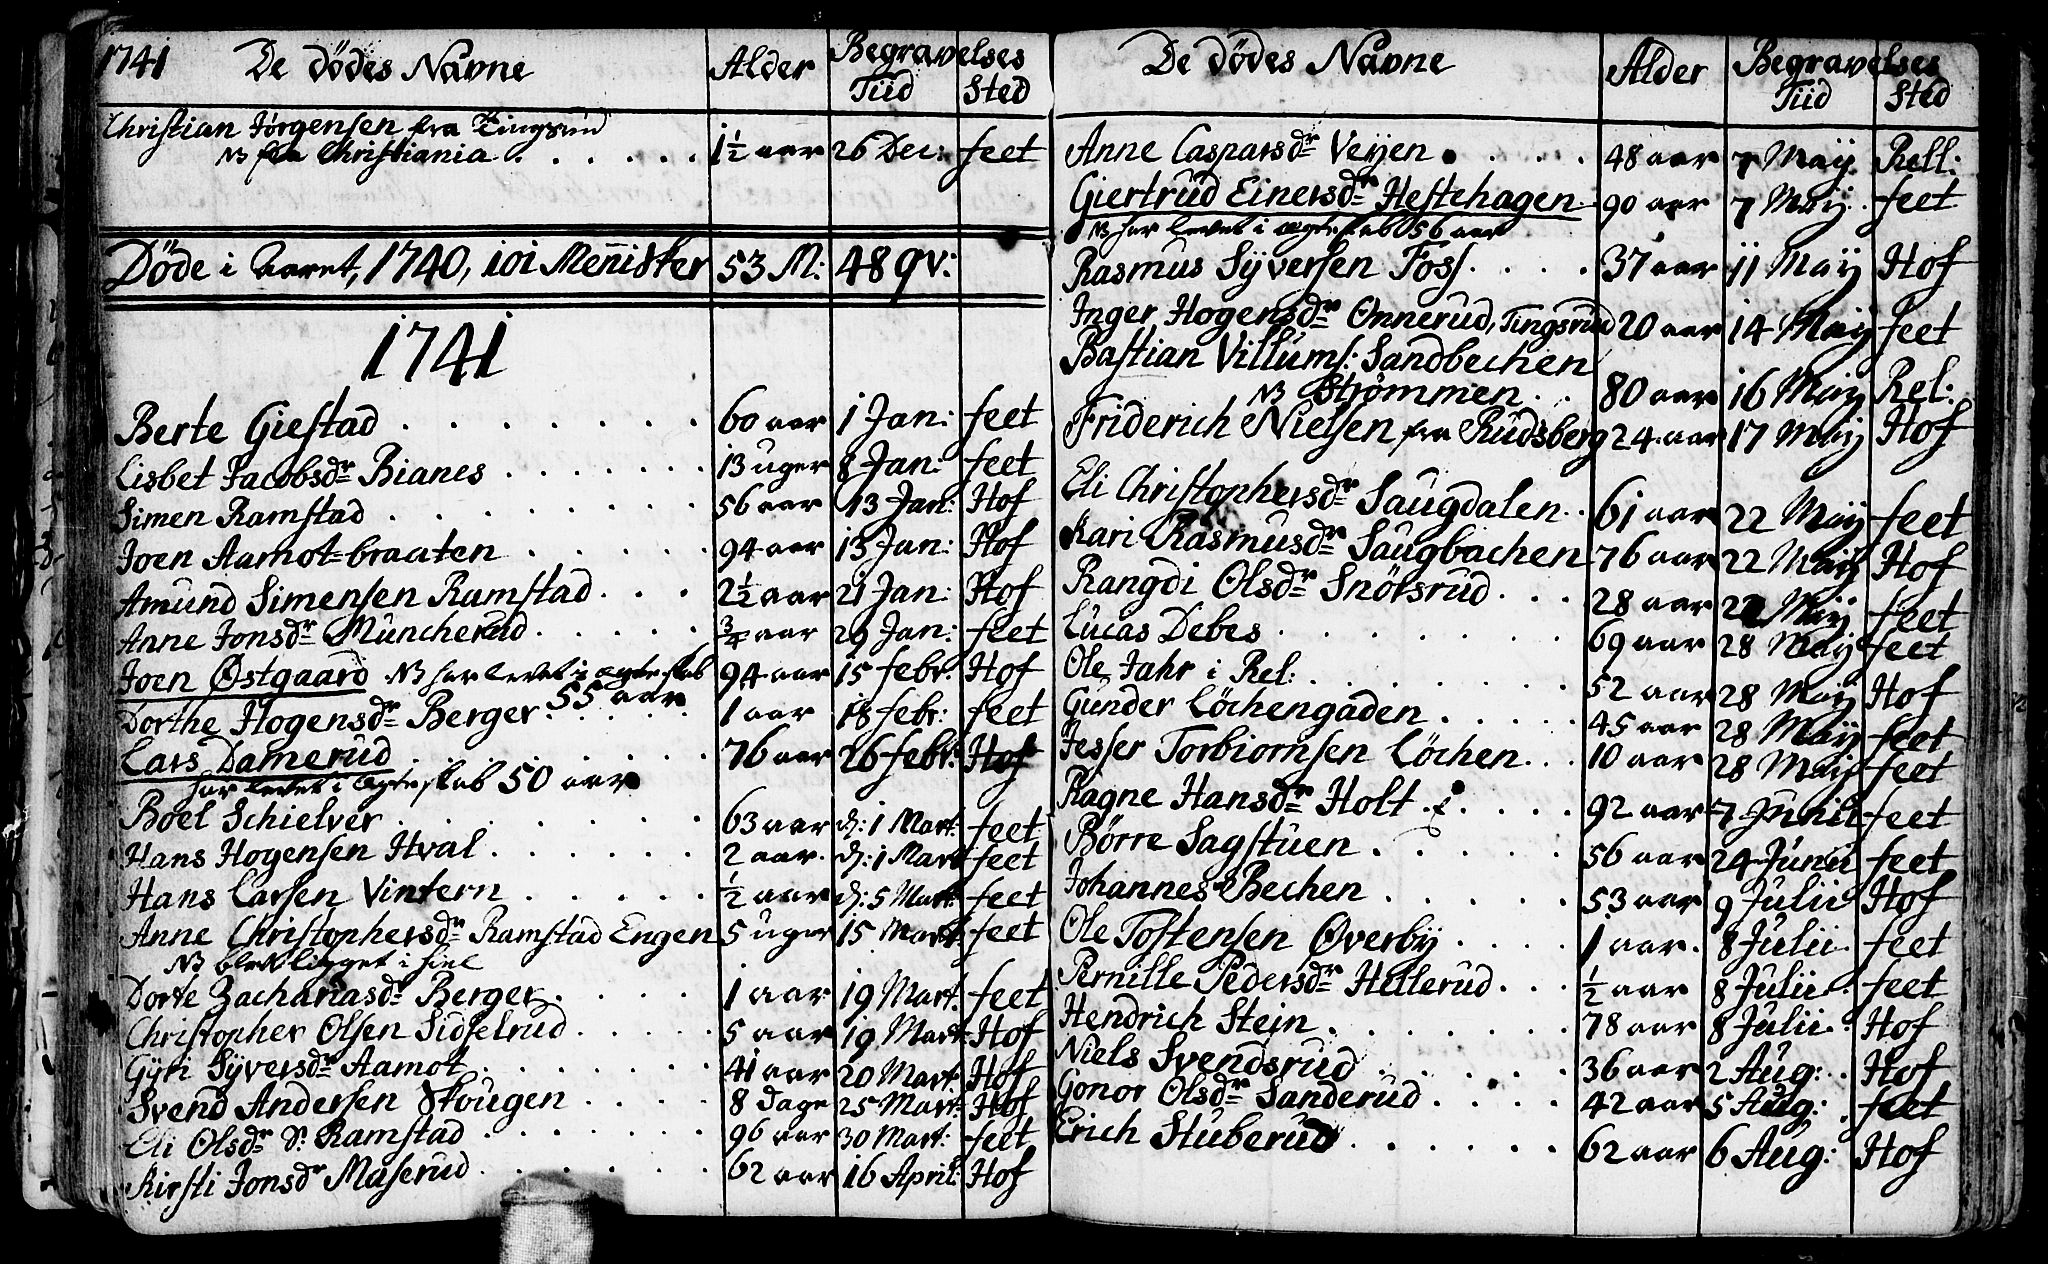 1741 De Dödes Navne Alder Begravelses
Tiid Sted
Christian Jörgensen fra Tingsrud
NB fra Christiania . . . . . . 1½ aar 26 Dec: feet
Döde i Aaret, 1740, 101 Meñisker 53 M: 48 qv:
1741
Berte Giestad . . . . . . . . 60 aar 1 Jan: feet
Lisbet Jacobsdr Bianes . . . . . . 13 uger 8 Jan: feet
Simen Ramstad . . . . . . . . 56 aar 13 Jan: Hof
Joen Aamot=braaten . . . . . 94 aar 13 Jan: Hof
Amund Simensen Ramstad . . . 2½ aar 21 Jan: Hof
Anne Jonsdr Müncherud . . . . . ¾ aar 29 Jan: feet
Joen Østgaard NB har levet i ægteskab 94 aar 15 febr: Hof
55 aar
Dorthe Hogensdr Berger . . . . 1 aar 18 febr: feet
Lars Damerud . . . . . . . 76 aar 26 febr: Hof
har levet i ægteskab 50 aar
Boel Schielver . . . . . . . . 63 aar d: 1 Mart: feet
Hans Hogensen Hval . . . . . . 2 aar. d: 1 Mart feet
Hans Larsen Vintern . . . . . ½ aar d: 5 Mart: feet
Anne Christophersdr Ramstad Engen 5 uger 15 Mart: feet
NB blev ligget i hiel
Dorte Zachariasdr Berger . . . . 1 aar 19 Mart: feet
Christopher Olsen Sidselrud . . . . . 5 aar 19 Mart: Hof
Gyri Syversdr Aamot . . . . . . . 41 aar 20 Mart: Hof
Svend Andersen Skougen . . . . 8 Dage 25 Mart: Hof
Eli Olsdr S: Ramstad . . . . . . . 96 aar 30 Mart: feet
Kirsti Jonsdr Maserud . . . . . . . 62 aar 16 April: Hof
De Dödes Navne Alder Begravelses
Tiid Sted
Anne Casparsdr Veyen . . . . 48 aar 7 Maij Rell:
Giertrud Einersdr Hestehagen 90 aar 7 Maij. feet
NB har levet i ægteskab 56 aar
Rasmus Syversen Foss . . . . 37 aar 11 Maij Hof
Inger Hogensdr Onnerud, Tingsrud 20 aar 14 Maij feet
Bastian Villums: Sandbechen
NB Strömmen . . 80 aar 16 Maij Rel:
Friderich Nielsen fra Rudsberg 24 aar 17 Maij Hof
Eli Christophersdr Saugdalen . . 61 aar 22 Maij feet
Kari Rasmusdr Saugbachen 76 aar 22 Maij Hof
Rangdi Olsdr Snölsrud . . . 28 aar 22 Maij feet
Lucas Debes . . . . . . . . 69 aar 28 Maij feet
Ole Jahr i Rel: . . . . . . . 52 aar 28 Maij Hof
Gunder Löchengaden . . . . . 45 aar 28 Maij feet
Jesser Torbiornsen Löchen . . . 10 aar 28 Maij feet
Ragne Hansdr Holt . . . . . 92 aar 7 Junii feet
Börre Sagstuen . . . . . . 56 aar 24 Junii feet
Johannes Bechen . . . . . . 53 aar 9 Julii Hof
Ole Tostensen Øverby . . . . 1 aar. 8 Julii. feet
Pernille Pedersdr Hellerud . . . ½ aar 8 Julii. feet
Hendrich Stein . . . . . . . 78 aar 8 Julii. Hof
Niels Svendsrud . . . . . . 36 aar 2 Aug: Hof
Gonor Olsdr Sanderud . . . . 42 aar 5 Aug: feet
Erich Stuberud . . . . . . 62 aar 6 Aug: Hof